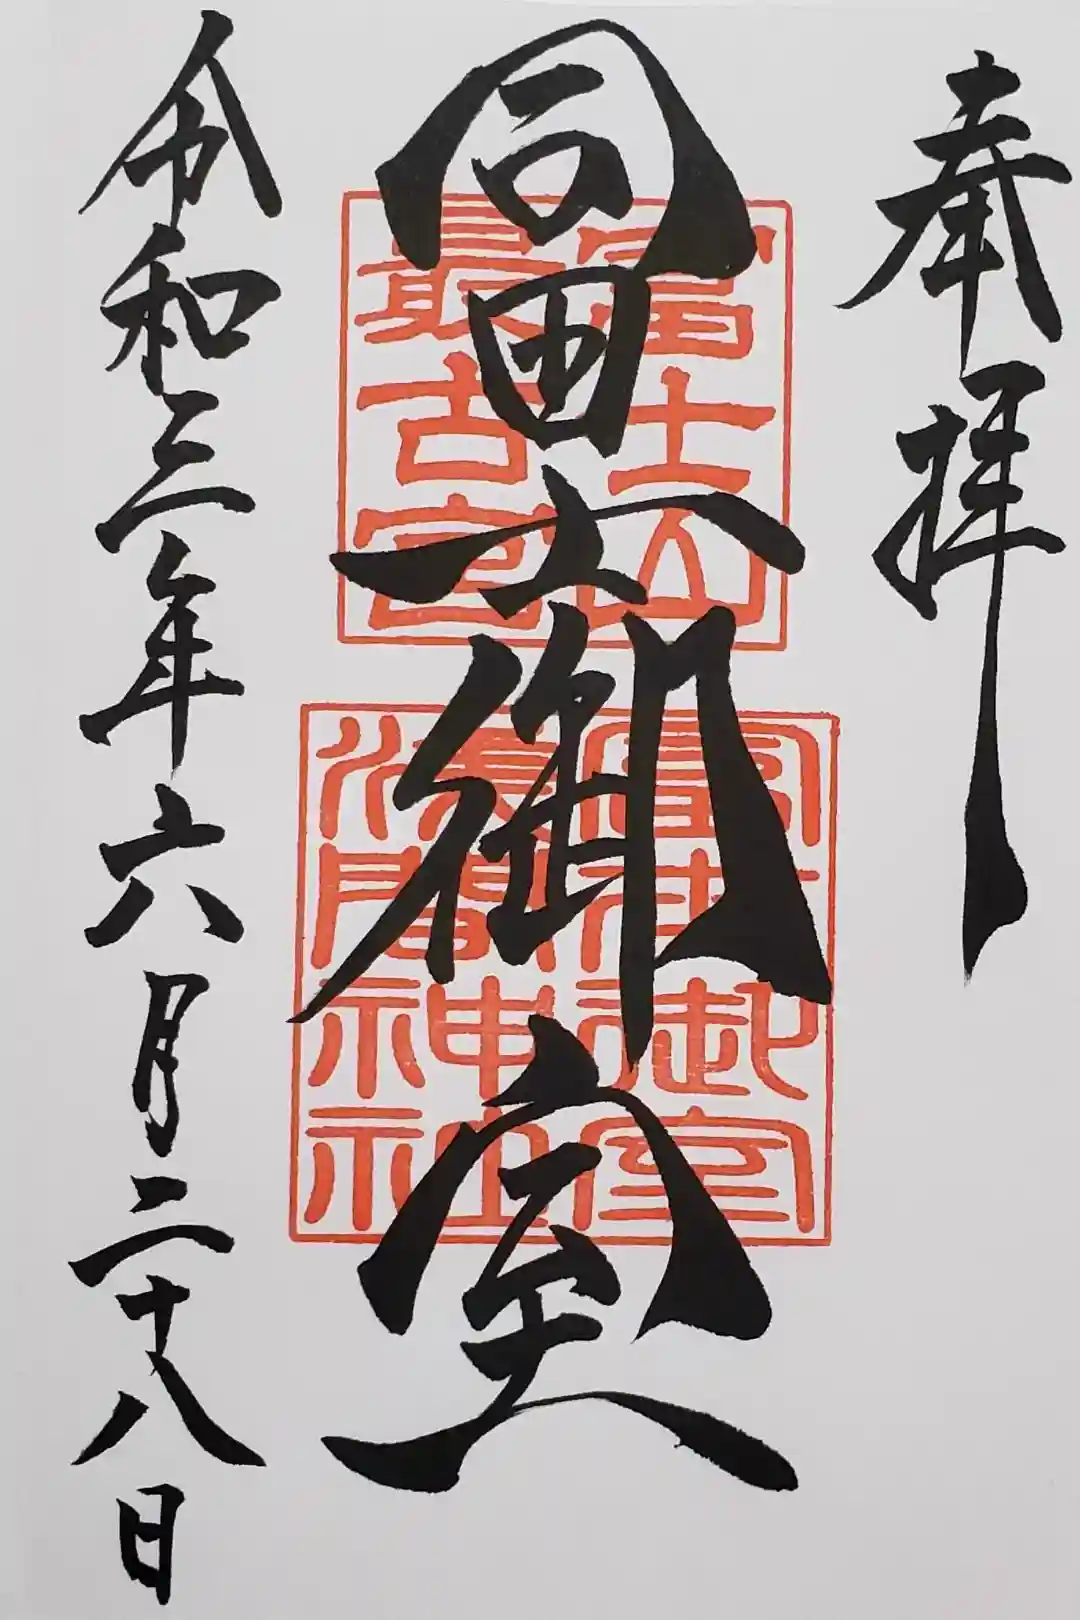 奉拝
冨士御室
富士山
最古宮
富士御室
浅間神社
令和三年六月二十八日